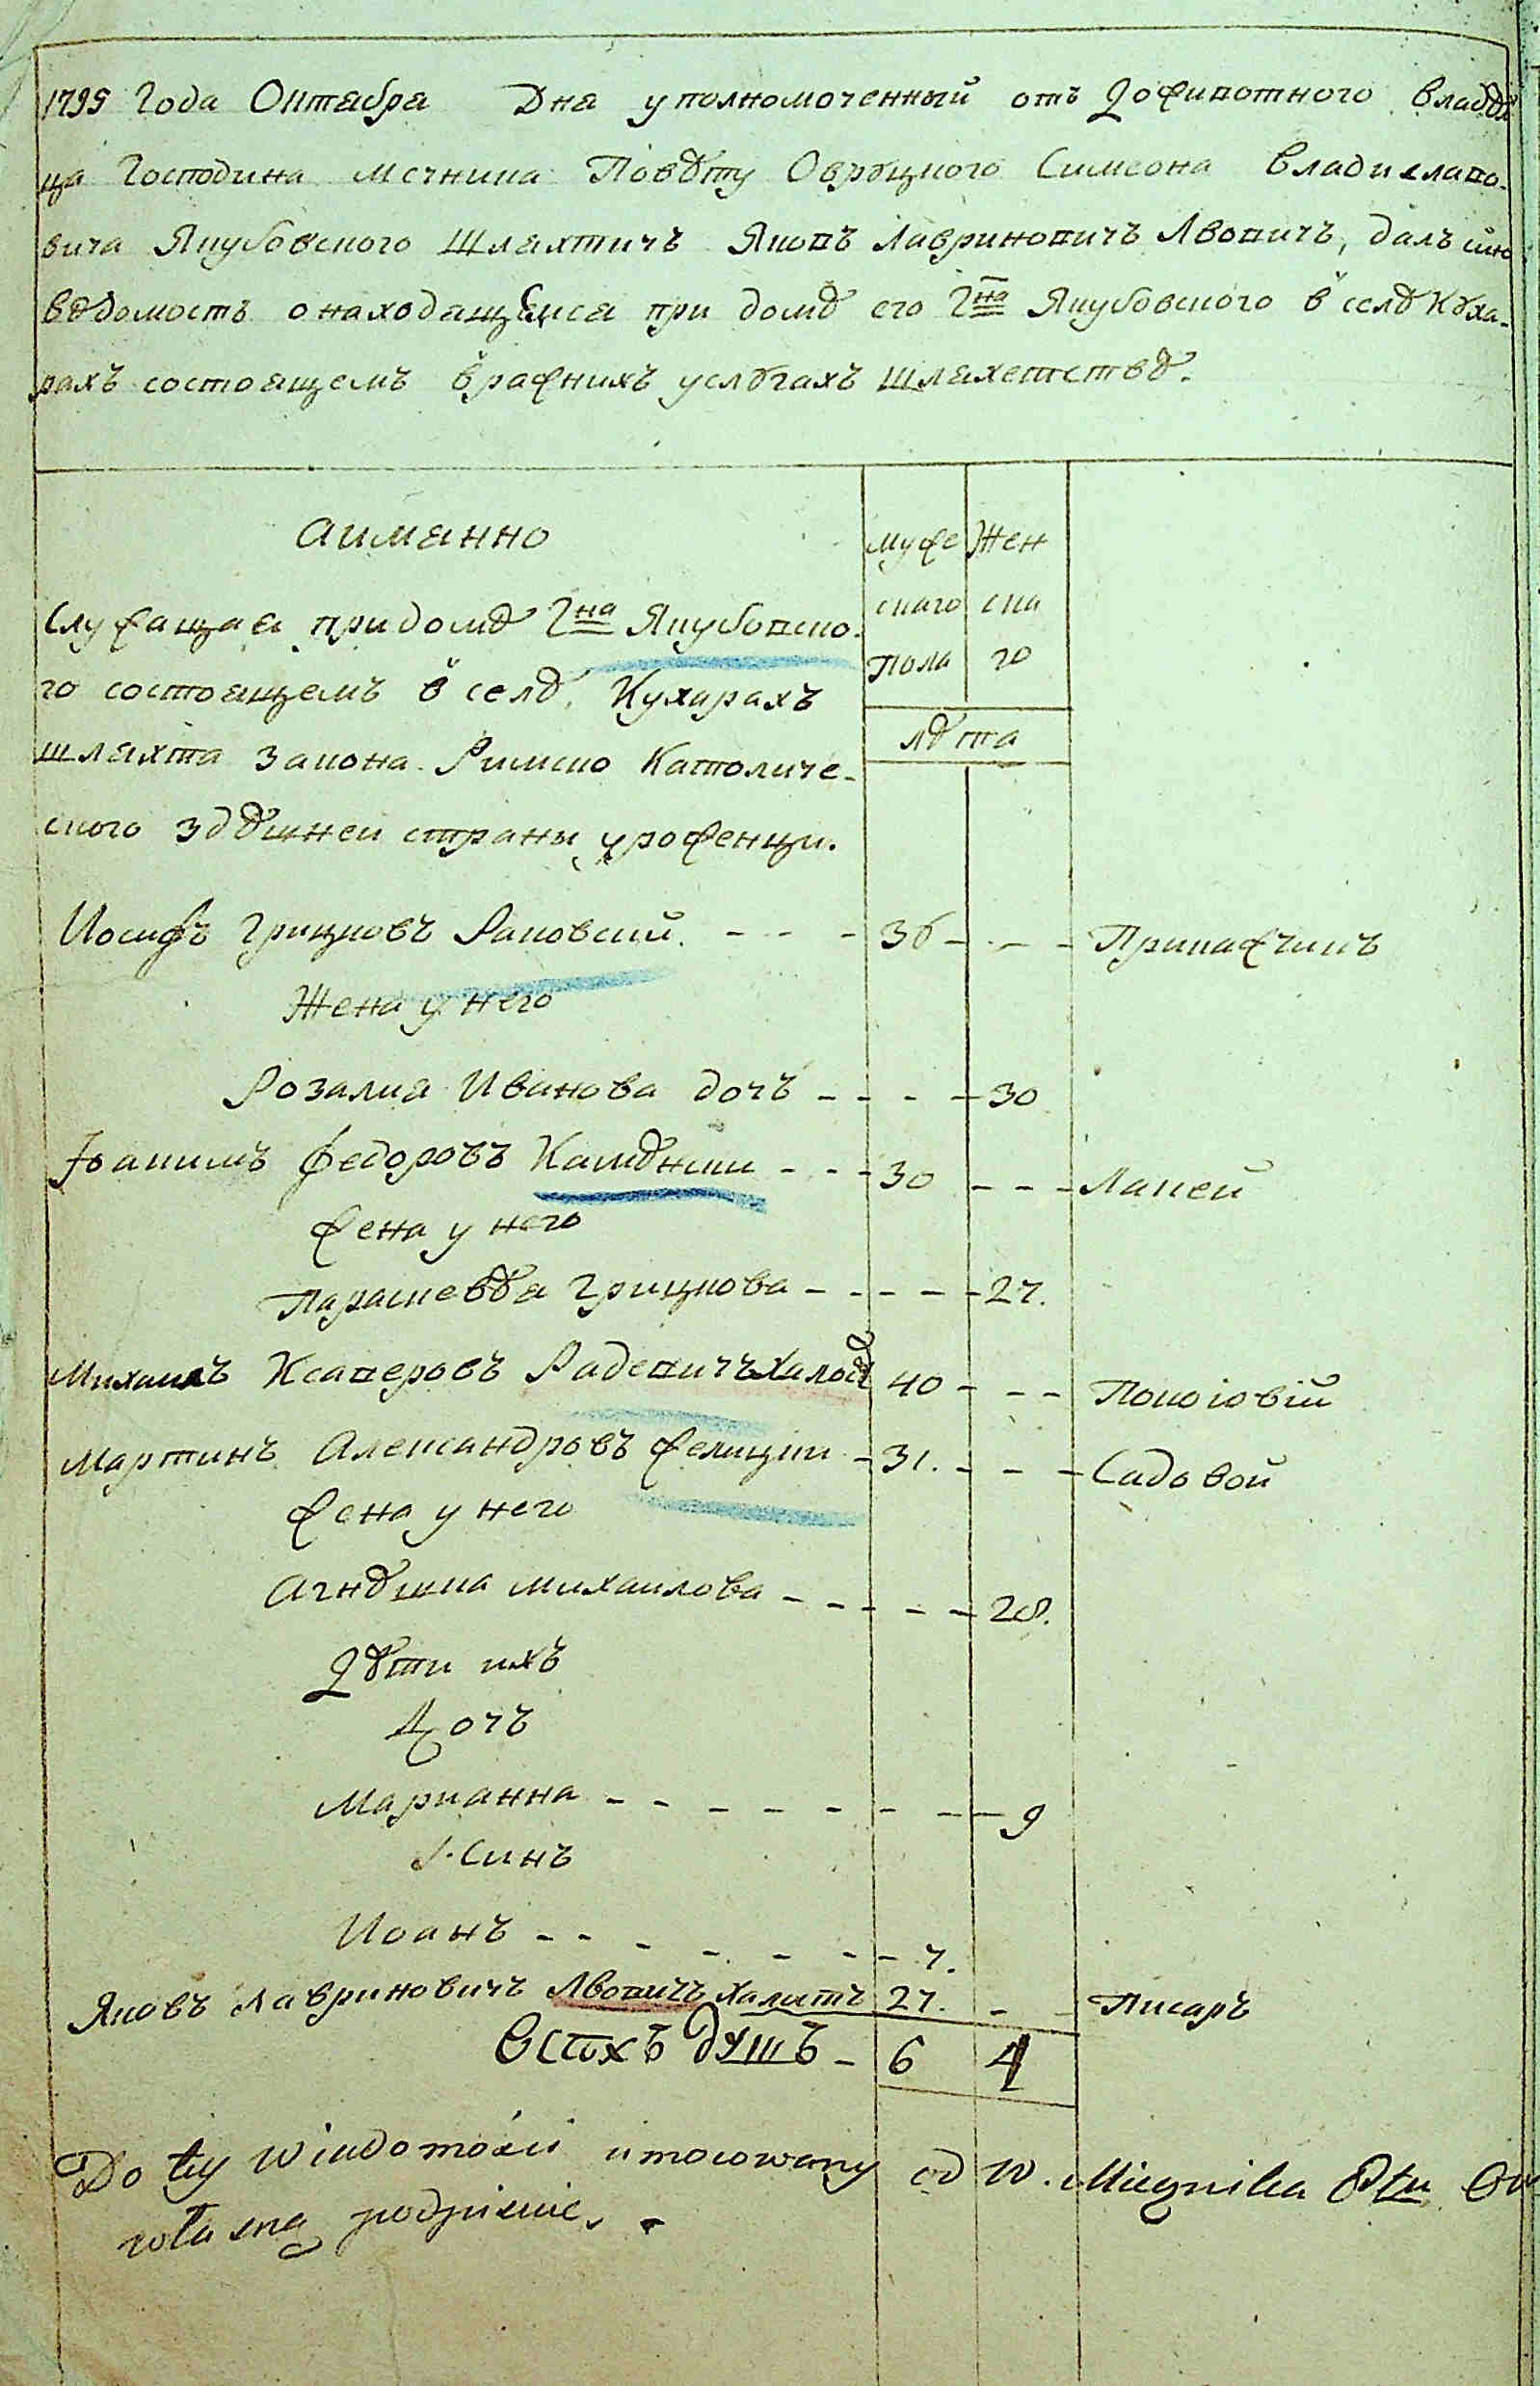 1795 Года Октабра Дна уполномоченный отъ Доживотного владѣл
ца Господина мечника Повѣту Овруцкого Симеона Владиславо-
вича Якубовского Шляхтичъ Яковъ Лавриновичъ Львовичъ, далъ сию
вѣдомость о находащемса при домѣ его Гна Якубовского в селѣ Куха-
рахъ состоящемъ в ражнихъ услугахъ шляхетствѣ.
аимянно
мужескаго пола
женскаго
лѣта
Служащая при домѣ Гна Якубовско-
го состоящемъ в селѣ Кухарахъ
шляхта закона Римско Католиче-
ского здѣшней страны уроженци.
Иосифъ Грицковъ Раковский - - - 36 - - - Приказчикъ
Жена у него
Розалия Иванова дочъ - - - - 30
Иоакимъ Федоровъ Камѣнски - - - 30 - - - Лакей
жена у него
Параскевѣя Грицкова - - - - - 27.
Михаилъ Ксаверовъ Радевичъ холост 40 - - - Покоіовій
Мартинъ Александровъ желицки - 31. - - - Садовой
жена у него
Агнѣшка михаилова - - - - - 28.
Дѣти ихъ
Дочъ
Марианна - - - - - - - - 9
Синъ
Иоанъ - - - - - - - 7.
Яковъ Лавриновичъ Львовичъ халатъ 27. - - Писаръ
Всѣхъ душъ - 6 4
Do tey wiadomości umocowany od W. Miecznika Ptu Ow
własną podpisuie.